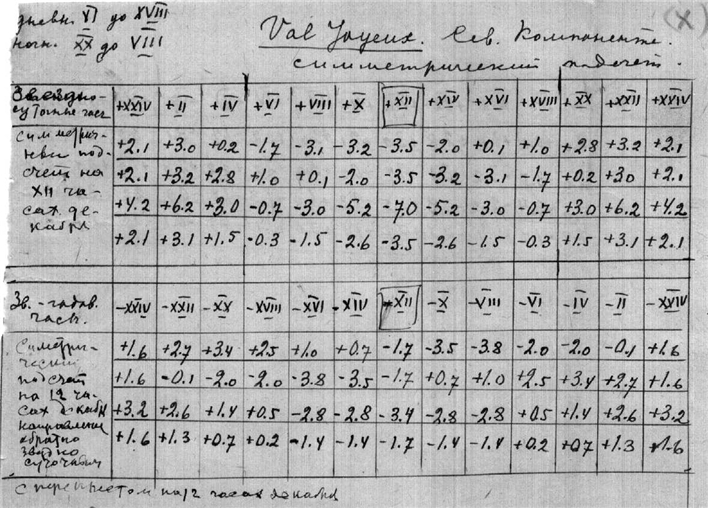 дневн. VI до XVIII
ночн. XX до VIII
Val Joyeux. Сев. Компонента.
симметрический подсчет.
(X)
Звездно- +XXIV +II +IV +VI +VIII +X +XII +XIV +XVI +XVIII +XX +XXII +XXIV
суточные часы
симметрич- +2.1 +3.0 +0.2 -1.7 -3.1 -3.2 -3.5 -2.0 +0.1 +1.0 +2.8 +3.2 +2.1
ный под-
счет на +2.1 +3.2 +2.8 +1.0 +0.1 -2.0 -3.5 -3.2 -3.1 -1.7 +0.2 +3.0 +2.1
XII ча-
сах де- +4.2 +6.2 +3.0 -0.7 -3.0 -5.2 -7.0 -5.2 -3.0 -0.7 +3.0 +6.2 +4.2
кабря +2.1 +3.1 +1.5 -0.3 -1.5 -2.6 -3.5 -2.6 -1.5 -0.3 +1.5 +3.1 +2.1
Зв.-годов. -XXIV -XXII -XX -XVIII -XVI -XIV -XII -X -VIII -VI -IV -II -XXIV
часы.
симетри- +1.6 +2.7 +3.4 +2.5 +1.0 +0.7 -1.7 -3.5 -3.8 -2.0 -2.0 -0.1 +1.6
ческий
подсчет +1.6 -0.1 -2.0 -2.0 -3.8 -3.5 -1.7 +0.7 +1.0 +2.5 +3.4 +2.7 +1.6
на 12 ча-
сах декабр +3.2 +2.6 +1.4 +0.5 -2.8 -2.8 -3.4 -2.8 -2.8 +0.5 +1.4 +2.6 +3.2
направление
обратно +1.6 +1.3 +0.7 +0.2 -1.4 -1.4 -1.7 -1.4 -1.4 +0.2 +0.7 +1.3 +1.6
звездно
суточным
с перекрестом на 12 часах декабря